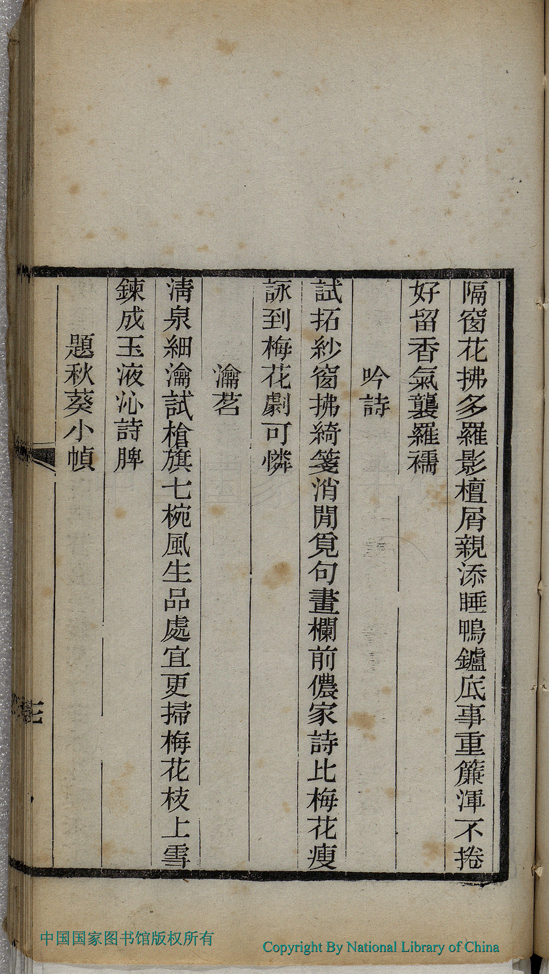 隔窗花拂多羅影檀屑親添睡鴨鑪底事重簾渾不捲
好留香氣襲羅襦
吟詩
試拓紗窗拂綺箋消閒覓句畫欄前儂家詩比梅花瘦
詠到梅花劇可憐
瀹茗
清泉細瀹試槍旗七椀風生品處宜更掃梅花枝上雪
鍊成玉液沁詩脾
題秋葵小幀
三
中国国家图书馆版权所有
Copyright By National Library of China